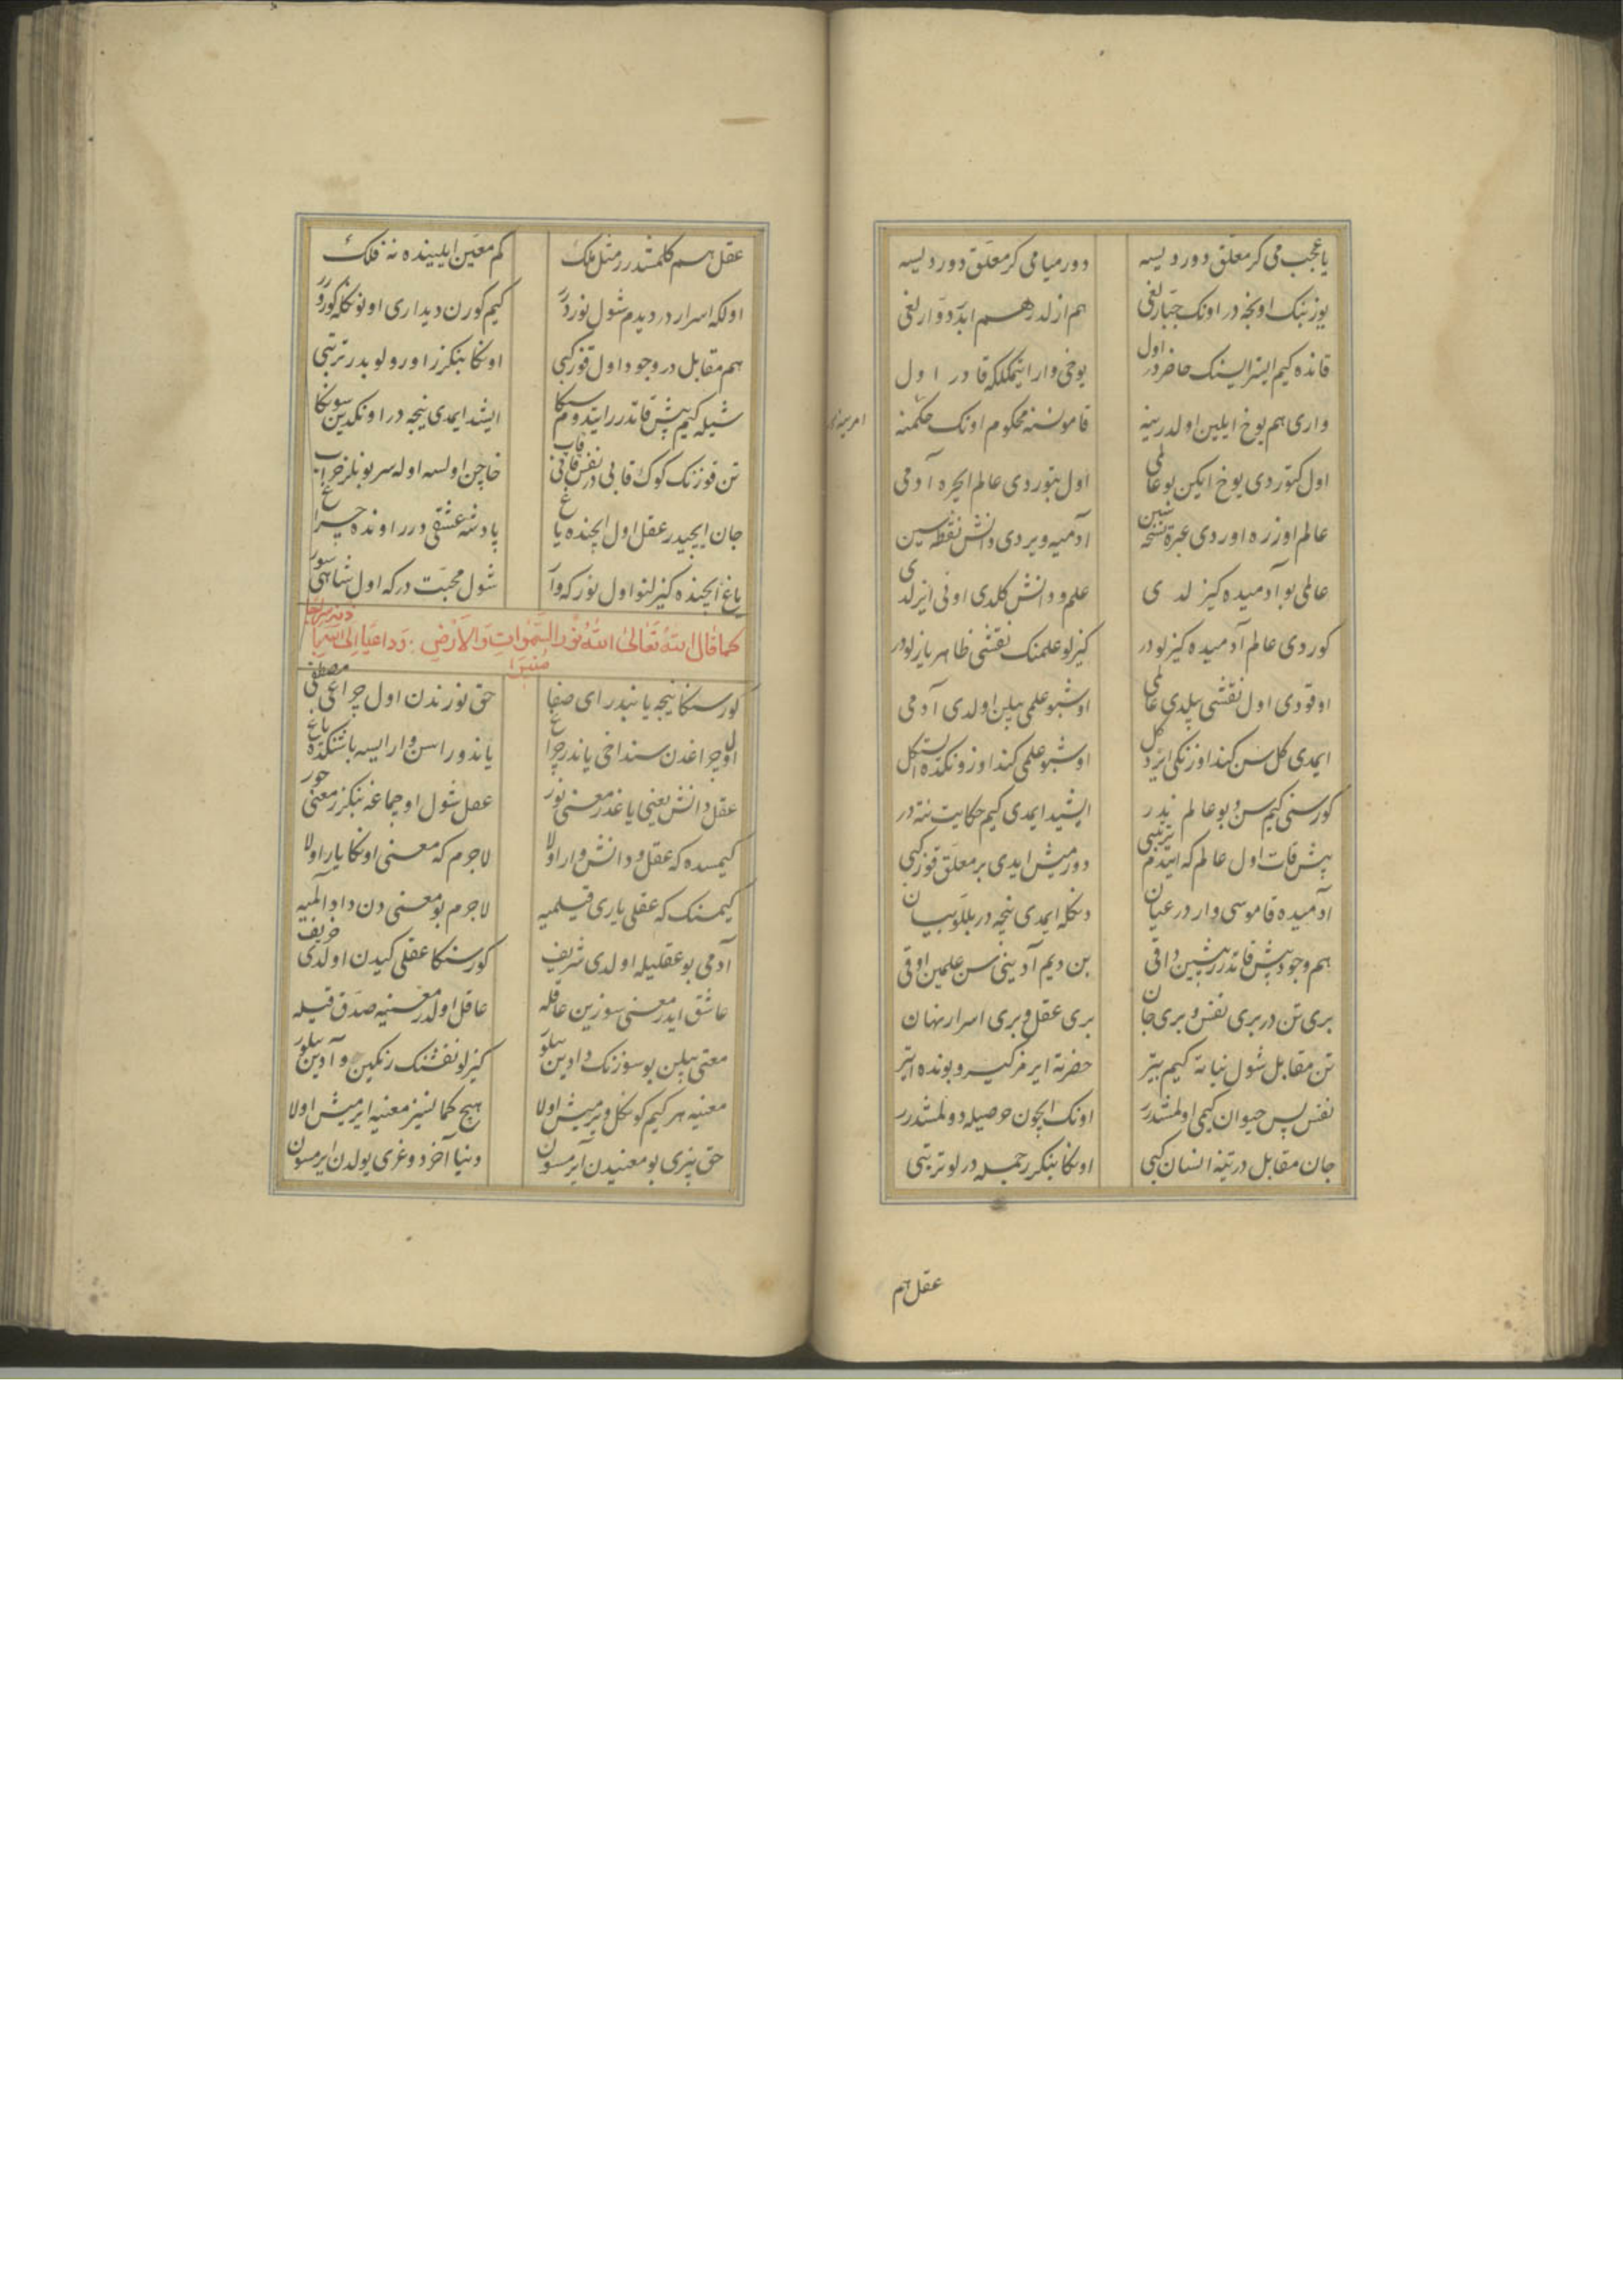 یا عجب می کر معلق دوردیسه دورمیا می کر معلق دوردیسه
یوز بنک اونجه در اونک جبارلغی هم ازلدر هم ابد دوارلغی
قانده کیم ایسترایسنک حاضردر اول یوخی وار ایتمکلکه قادر اول
واری هم یوخ ایلین اولدر ینه قامو نسنه محکوم اونک حکمنه
اول کتوردی یوخ ایکن بو عالمی اول بتوردی عالم ایچره آدمی
عالم اوزره اوردی عبرة نسخه سین آدمیه ویردی دانش نقطه سین
عالمی بو آدمیده کیزلدی علم و دانش کلدی اونی ایزلدی
کوردی عالم آدمیده کیزلودر کیزلو علمنک نقشی ظاهر یازلودر
اوقودی اول نقشی بیلدی عالمی اوشبو علمی بیلن اولدی آدمی
ایمدی کل سن کند اوزنکی ایزد کل اوشبو علمی کند اوزونکده ایستکل
کورسنی کیم سن و بو عالم ندر ایشید ایمدی کیم حکایت نته در
بیش قات اول عالم که ایتدم ترتیبی دورمیش ایدی بر معلق قوز کبی
آدمیده قاموسی وار در عیان دنکله ایمدی نیجه در بللو بیان
هم وجود بیش قاتدر بشین داقی بن دیم آدینی سن علمین اوقی
بری تن در بری نفس و بری جان بری عقل و بری اسرار نهان
تن مقابل شول نباته کیم بیتر حضرته ایر مز کیرو بونده ایتر
نفس پس حیوان کیمی اولمشدرر اونک ایچون حرصیله دولمشدرر
جان مقابل در تنه انسان کبی اونکا بنکزر جمله درلو ترتبی
عقل هم
عقل هم کلمشدرر مثل ملک کم معین ایلینده نه فلک
اولکه اسرار در دیدم شول نوردرر کیم کورن دیداری اونونکله کورر
هم مقابل در وجود اول قوز کبی اونکا بنکزر اورولوبدر ترتبی
شیله کیم بیش قاتدرر ایتدوم سکا ایشد ایمدی نیجه در اونکدین سونکا
تن قوزنک کوک قابی در نفس قاتی قاب خاچن اولسه اوله سر بونلر خراب
جان ایچیدر عقل اول ایچنده یاغ پادشه عشقی درر اونده چراغ
یاغ ایچنده کیزلنو اول نور که وار شول محبت درکه اول شاهی سور
کما قال الله تعالی الله نور السموات والارض وداعیا الی الله باذنه وسراجا منیرا
کور سنکا نیجه یانبدر ای صفا حق نورندن اول چراغی مصطفی
اول چراغدن سنداخی یاندر چراغ یاندوراسن وار ایسه باشنکده یاغ
عقل دانش یعنی یاغدر معنی نور عقل شول اوجماغه بنکزر معنی حور
کیمسده که عقل و دانش وار اولا لاجرم که معنی اونکا یار اولا
کیمسنک که عقلی یاری قیلمیه لاجرم بو معنی دن داد آلمیه
آدمی بو عقلیله اولدی شریف کور سنکا عقلی کیدن اولدی خریف
عاشق ایدر معنی سوزین عاقله عاقل اولدر معنیه صدق قیله
معنی بیلن بو سوزنک دادین بیلور کیزلو نقشنک رنکین و آدین بیلور
معنیه هر کیم کونکل ویرمیش اولا هیچ کمانسیز معنیه ایرمیش اولا
حق بیزی بو معنیدن آیرمسون دنیا آخر دوغری یولدن ایرمسون